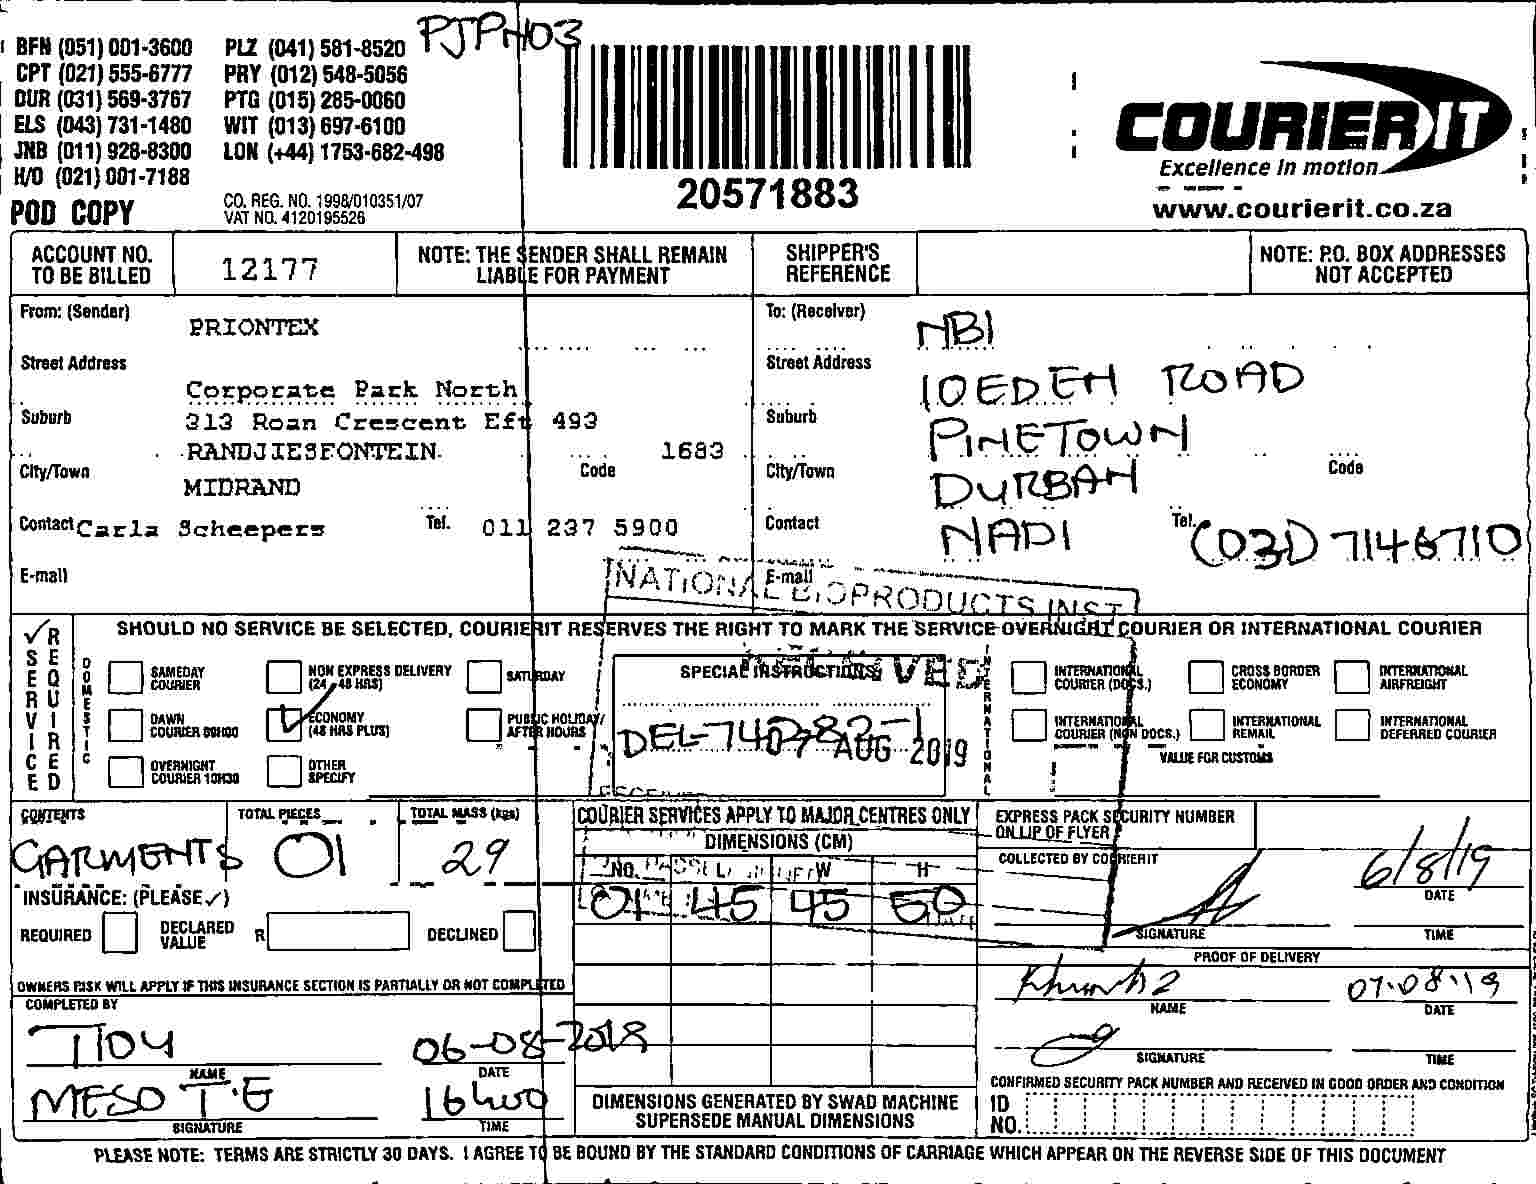 PJPH03
BFN (051) 001-3600 PLZ (041) 581-8520
CPT (021) 555-6777 PRY (012) 548-5056
DUR (031) 569-3767 PTG (015) 285-0060
ELS (043) 731-1480 WIT (013) 697-6100
JNB (011) 928-8300 LON (+44) 1753-682-498
H/O (021) 001-7188
POD COPY
CO. REG. NO. 1998/010351/07
VAT NO. 4120195526
20571883
COURIER IT
Excellence in motion
www.courierit.co.za
ACCOUNT NO. TO BE BILLED 12177
NOTE: THE SENDER SHALL REMAIN LIABLE FOR PAYMENT
SHIPPER'S REFERENCE
NOTE: P.O. BOX ADDRESSES NOT ACCEPTED
From: (Sender) PRIONTEX
Street Address Corporate Park North
Suburb 313 Roan Crescent Eft 493
RANDJIESFONTEIN 1683
City/Town MIDRAND Code
Contact Carla Scheepers Tel. 011 237 5900
E-mail
To: (Receiver) NBI
Street Address 10 EDEN ROAD
Suburb PINETOWN
City/Town DURBAN Code
Contact NADI Tel. (031) 7146710
E-mail
NATIONAL BIOPRODUCTS INST
SHOULD NO SERVICE BE SELECTED, COURIERIT RESERVES THE RIGHT TO MARK THE SERVICE OVERNIGHT COURIER OR INTERNATIONAL COURIER
✓ SERVICE REQUIRED
DOMESTIC
SAMEDAY COURIER
NON EXPRESS DELIVERY (24 - 48 HRS)
SATURDAY
DAWN COURIER 09H00
✓ ECONOMY (48 HRS PLUS)
PUBLIC HOLIDAY/ AFTER HOURS
OVERNIGHT COURIER 10H30
OTHER SPECIFY
SPECIAL INSTRUCTIONS
DEL-740282-1
07 AUG 2019
INTERNATIONAL
INTERNATIONAL COURIER (DOCS.)
CROSS BORDER ECONOMY
INTERNATIONAL AIRFREIGHT
INTERNATIONAL COURIER (NON DOCS.)
INTERNATIONAL REMAIL
INTERNATIONAL DEFERRED COURIER
VALUE FOR CUSTOMS
CONTENTS GARMENTS
TOTAL PIECES 01
TOTAL MASS (kgs) 29
INSURANCE: (PLEASE ✓)
REQUIRED DECLARED VALUE R DECLINED
OWNERS RISK WILL APPLY IF THIS INSURANCE SECTION IS PARTIALLY OR NOT COMPLETED
COMPLETED BY
TIDY 06-08-2019
NAME DATE
MESO T.E 16h00
SIGNATURE TIME
COURIER SERVICES APPLY TO MAJOR CENTRES ONLY
DIMENSIONS (CM)
NO. L W H
01 45 45 50
DIMENSIONS GENERATED BY SWAD MACHINE SUPERSEDE MANUAL DIMENSIONS
EXPRESS PACK SECURITY NUMBER ON LIP OF FLYER
COLLECTED BY COURIERIT
6/8/19
DATE
SIGNATURE TIME
PROOF OF DELIVERY
07-08-19
NAME DATE
SIGNATURE TIME
CONFIRMED SECURITY PACK NUMBER AND RECEIVED IN GOOD ORDER AND CONDITION
ID NO.
PLEASE NOTE: TERMS ARE STRICTLY 30 DAYS. I AGREE TO BE BOUND BY THE STANDARD CONDITIONS OF CARRIAGE WHICH APPEAR ON THE REVERSE SIDE OF THIS DOCUMENT